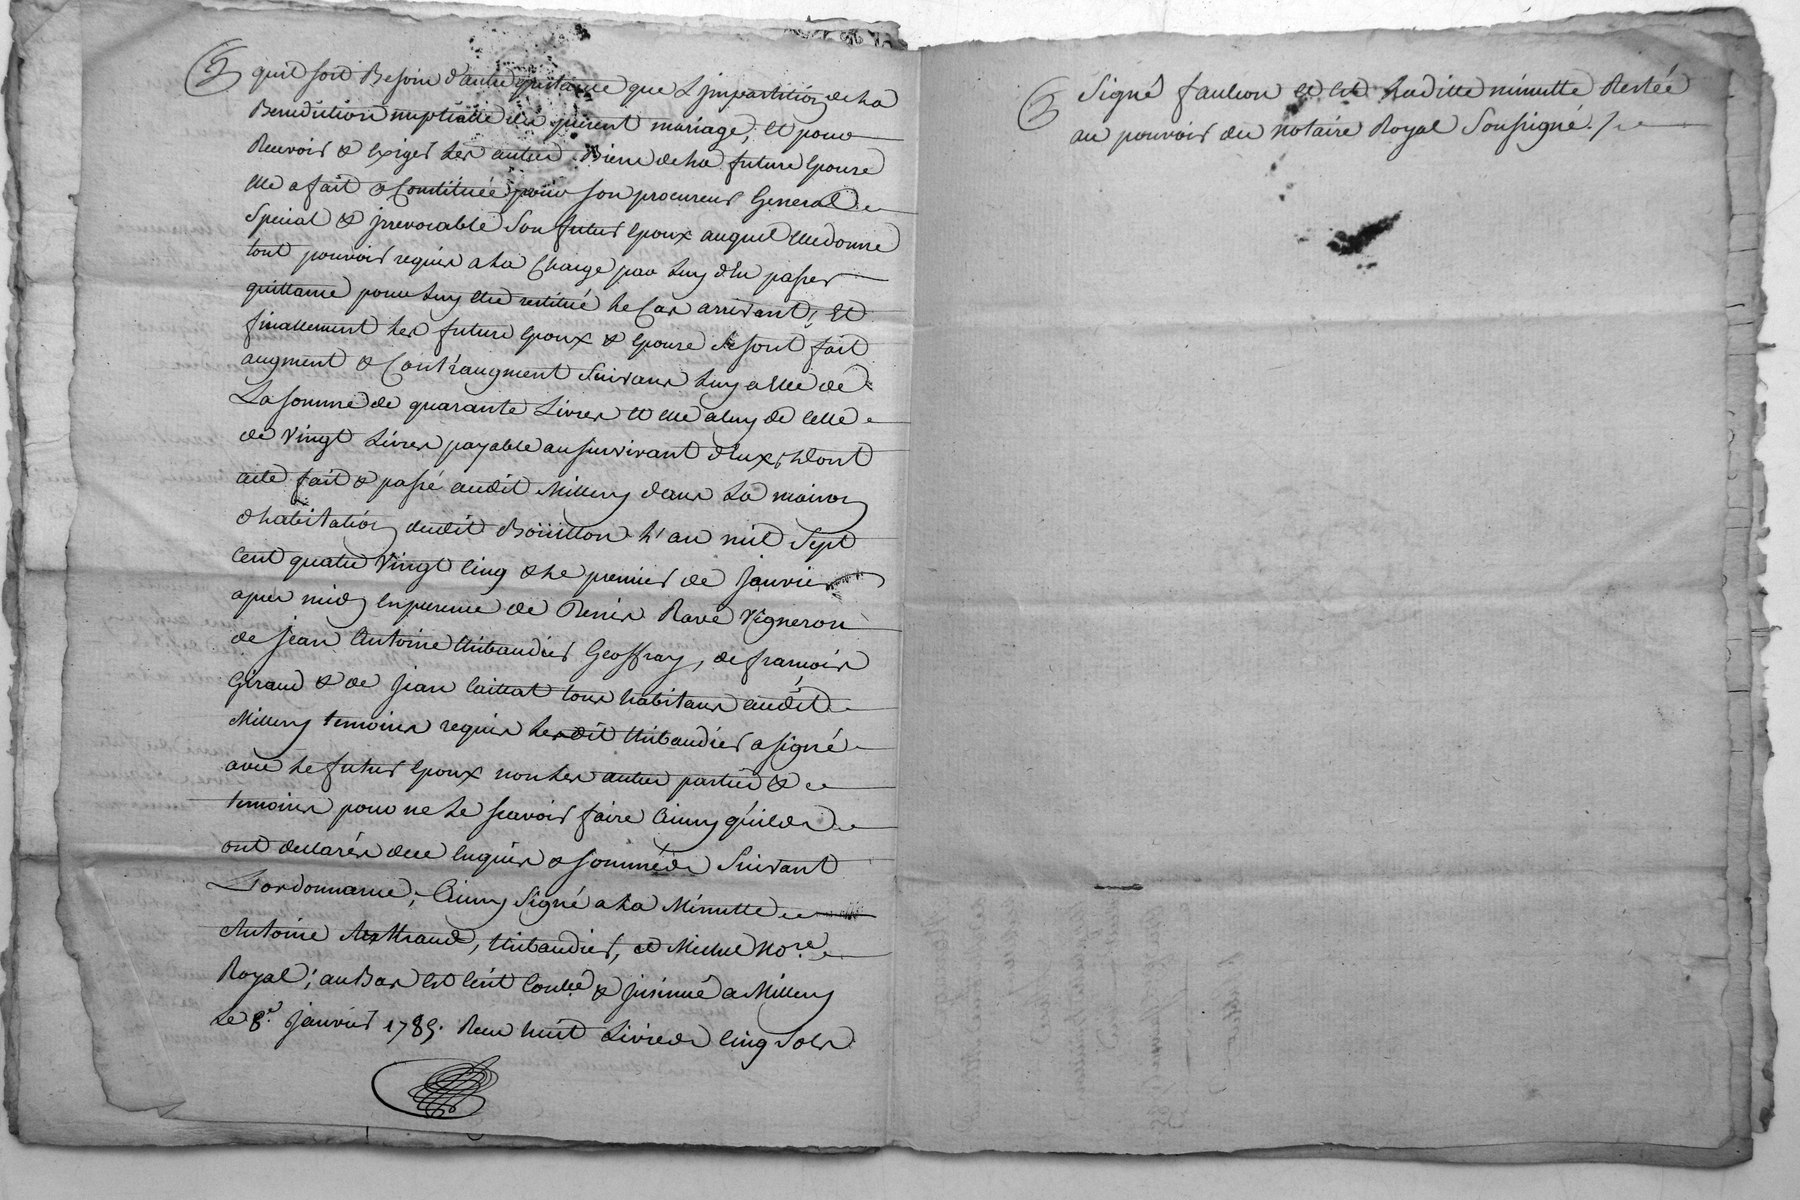 qu'il soit Besoin d'autre quittance que L'jmpartition de La
Benediction nuptialle du present mariage, Et pour
Recevoir & Exiger Les autres Biens de La future Epouse
Elle a fait & Constituée pour son procureur General
Special & jrrevocable Son futur Epoux auquel Elle donne
tout pouvoir requis a La Charge par Luy d'En passer
quittance pour Luy Etre restitué Le Cas arrivant, Et
finallement Les future Epoux & Epouse se sont fait
augment & Contr'augment Suivans Luy a Elle de
La somme de quarante Livres Et Elle a luy de Celle
de Vingt Livres payable au survivant d'Eux, Dont
acte fait & passé audit Millery dans La maison
d'habitation dudit Boüillon L'an mil Sept
Cent quatre Vingt Cinq & Le premier de Janvier
apres midy En presence de Denis Ravé Vigneron
de Jean Antoine thibaudier Geoffray, de francois
Giraud & de Jean Caillat tous habitans audit
Millery temoins requis Ledit thibaudier a signé
avec Le futur Epoux non Les autres parties &
temoins pour ne Le scavoir faire Ainsy qu'ils
ont declarés de ce Enquis & sommés Suivant
L'ordonnance, Ainsy Signé a La Minutte
Antoine, thibaudier, et Michel No.re
Royal; au Bas Est Ecrit Controllé & jnsinué a Millery
Le 8.e Janvier 1785. Reçu huit Livres Cinq Sols
Signé faulion Et Est Laditte minutte Restée
au pouvoir du notaire Royal Soussigné ./.